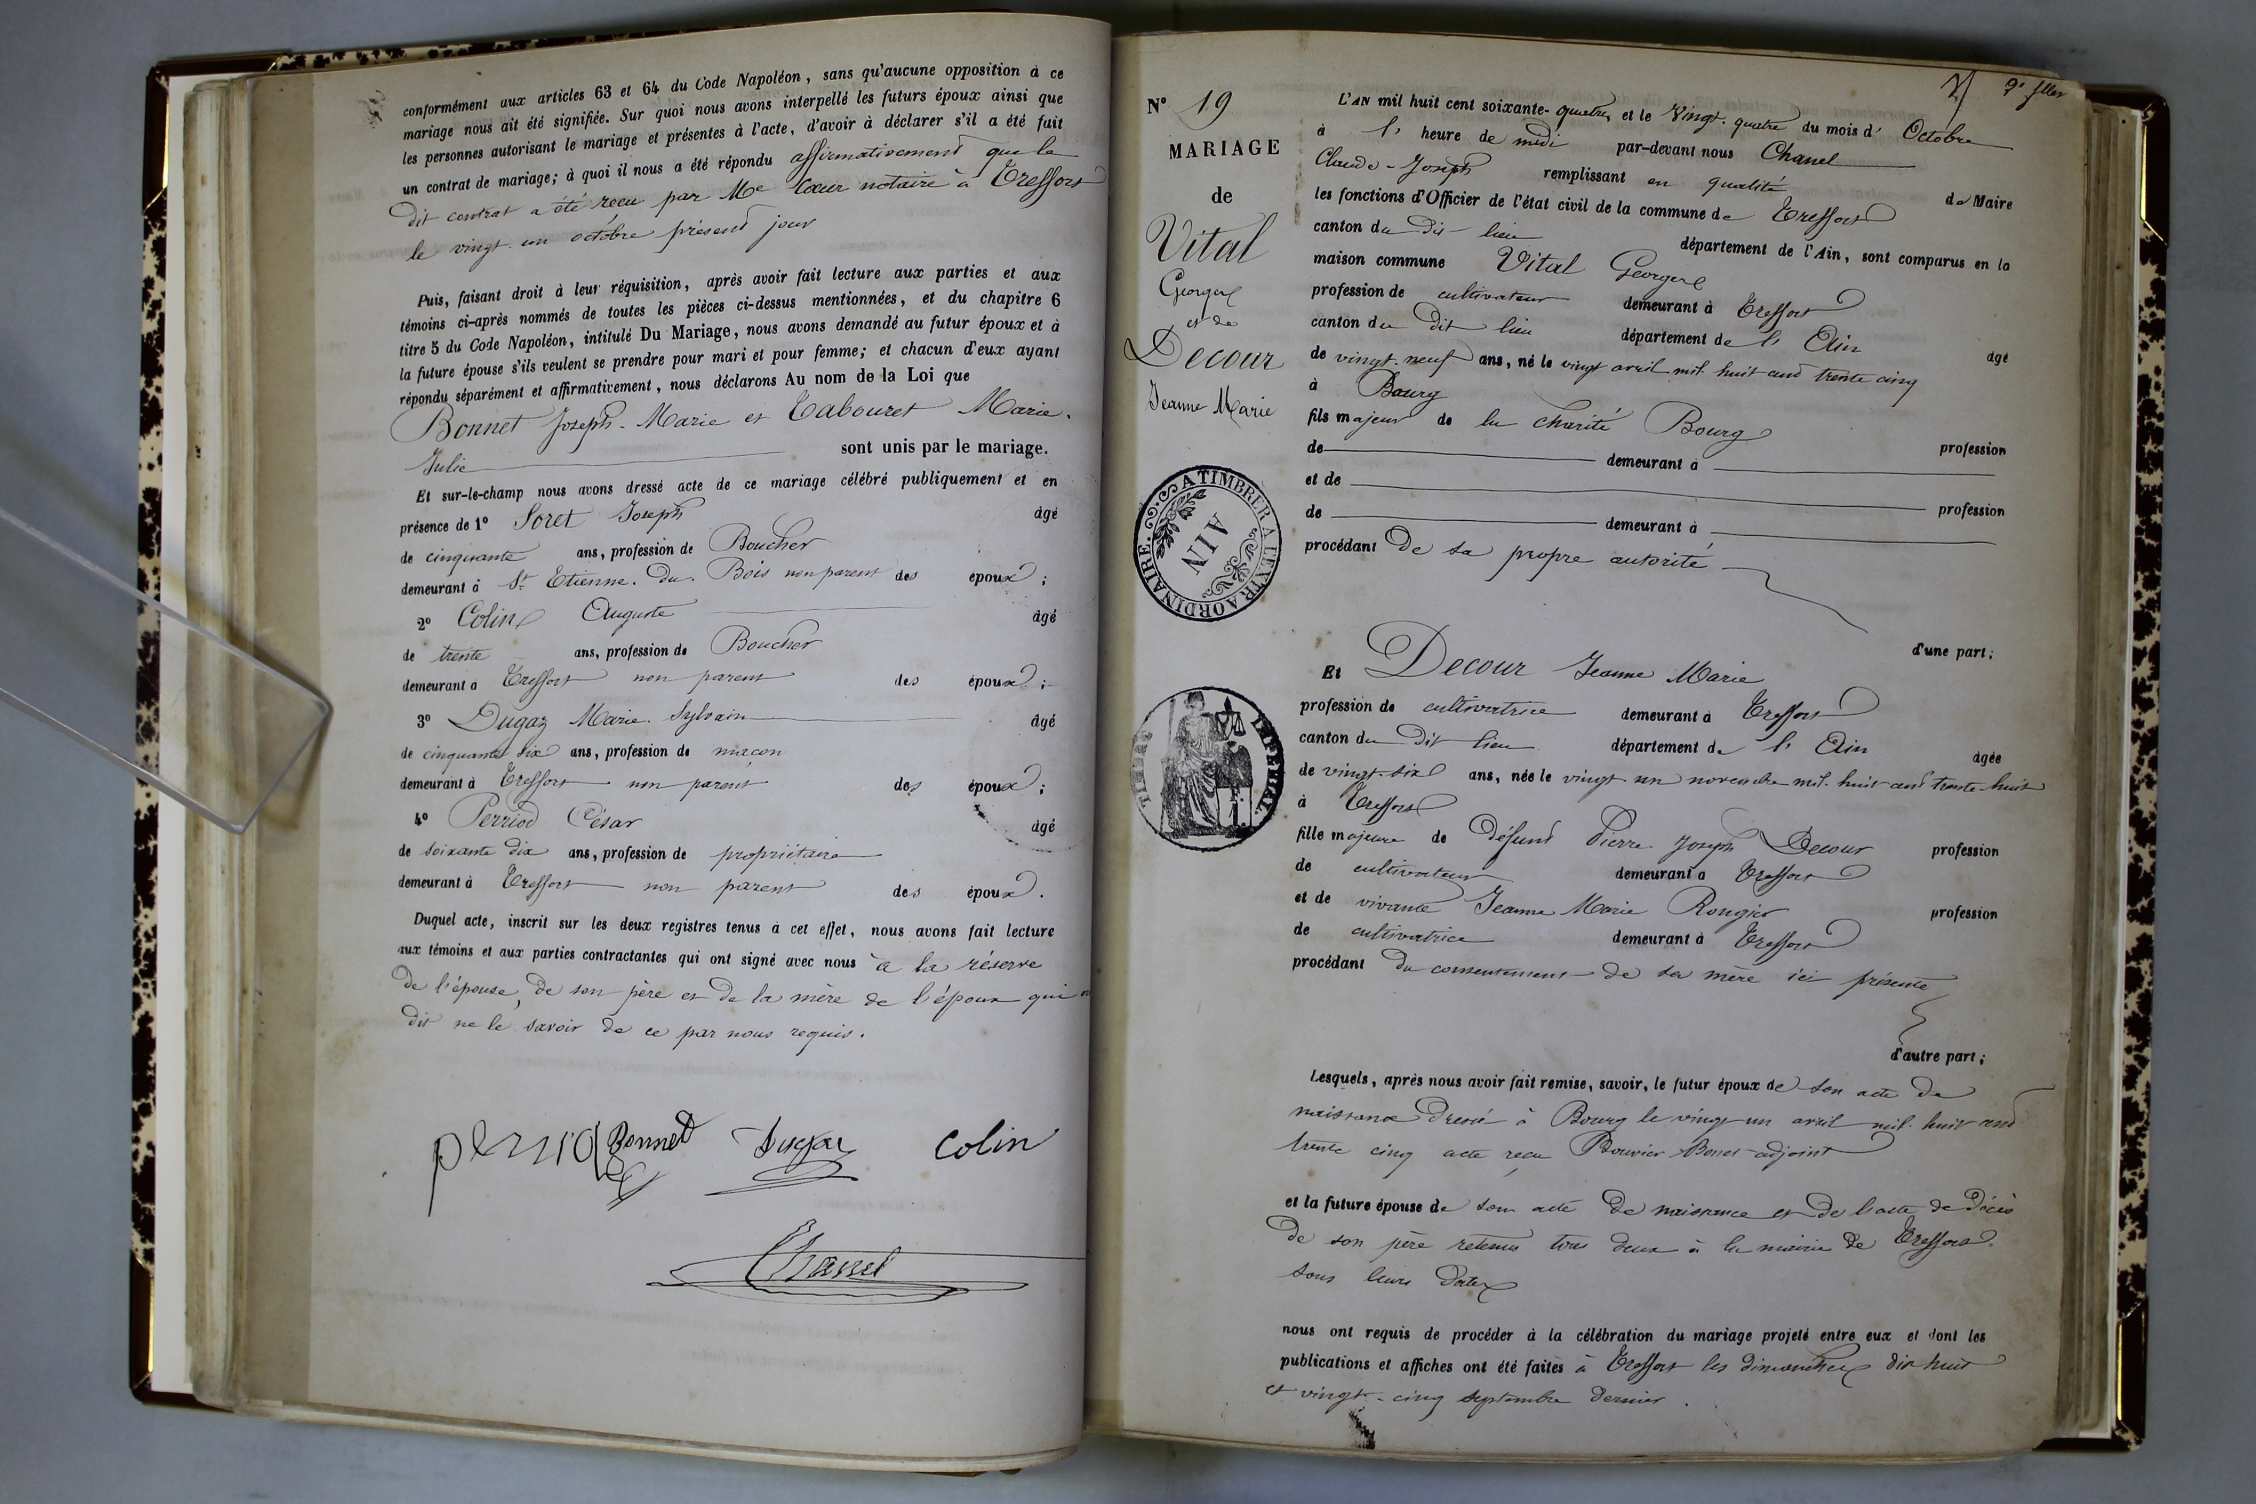 conformément aux articles 63 et 64 du Code Napoléon, sans qu'aucune opposition à ce
mariage nous ait été signifiée. Sur quoi nous avons interpellé les futurs époux ainsi que
les personnes autorisant le mariage et présentes à l'acte, d'avoir à déclarer s'il a été fait
un contrat de mariage; à quoi il nous a été répondu affirmativement que le
dit contrat a été reçu par Me Cœur notaire à Treffort
le vingt-un octobre présent jour
Puis, faisant droit à leur réquisition, après avoir fait lecture aux parties et aux
témoins ci-après nommés de toutes les pièces ci-dessus mentionnées, et du chapitre 6
titre 5 du Code Napoléon, intitulé Du Mariage, nous avons demandé au futur époux et à
la future épouse s'ils veulent se prendre pour mari et pour femme; et chacun d'eux ayant
répondu séparément et affirmativement, nous déclarons Au nom de la Loi que
Bonnet Joseph-Marie et Tabouret Marie.
Julie sont unis par le mariage.
Et sur-le-champ nous avons dressé acte de ce mariage célébré publiquement et en
présence de 1° Soret Joseph âgé
de cinquante ans, profession de Boucher
demeurant à St Etienne. du. Bois non parent des époux;
2° Colin Auguste âgé
de trente ans, profession de Boucher
demeurant à Treffort non parent des époux;
3° Dugaz Marie. Sylvain âgé
de cinquante six ans, profession de maçon
demeurant à Treffort non parent des époux;
4° Perriod César âgé
de soixante dix ans, profession de propriétaire
demeurant à Treffort non parent des époux.
Duquel acte, inscrit sur les deux registres tenus à cet effet, nous avons fait lecture
aux témoins et aux parties contractantes qui ont signé avec nous à la réserve
de l'épouse, de son père et de la mère de l'époux qui
dit ne le savoir de ce par nous requis.
perriod Bonnet Dugaz Colin
Chanel
9e fllet
N° 19
MARIAGE
de
Vital
George
et de
Decour
Jeanne Marie
A TIMBRER A L'EXTRAORDINAIRE.
AIN
TIMBRE IMPERIAL
L'AN mil huit cent soixante-quatre, et le Vingt-quatre du mois d' Octobre
à l' heure de midi par-devant nous Chanel
Claude-Joseph remplissant en qualité de Maire
les fonctions d'Officier de l'état civil de la commune de Treffort
canton du dit lieu département de l'Ain, sont comparus en la
maison commune Vital George
profession de cultivateur demeurant à Treffort
canton du dit lieu département de l' Ain âgé
de vingt-neuf ans, né le vingt avril mil huit cent trente cinq
à Bourg
fils majeur de la charité Bourg profession
de demeurant à
et de profession
de demeurant à
procédant de sa propre autorité
d'une part;
Et Decour Jeanne Marie
profession de cultivatrice demeurant à Treffort
canton du dit lieu département de l' Ain âgée
de vingt-six ans, née le vingt-un novembre mil huit cent trente-huit
à Treffort
fille majeure de défunt Pierre Joseph Decour profession
de cultivateur demeurant à Treffort
et de vivante Jeanne Marie Rongier profession
de cultivatrice demeurant à Treffort
procédant du consentement de sa mère ici présente
d'autre part;
Lesquels, après nous avoir fait remise, savoir, le futur époux de son acte de
naissance dressé à Bourg le vingt un avril mil huit cent
trente cinq acte reçu Bouvier adjoint
et la future épouse de son acte de naissance et de l'acte de décès
de son père retenus tous deux à la mairie de Treffort
sous leurs dates
nous ont requis de procéder à la célébration du mariage projeté entre eux et dont les
publications et affiches ont été faites à Treffort les dimanches dix huit
et vingt-cinq septembre dernier.